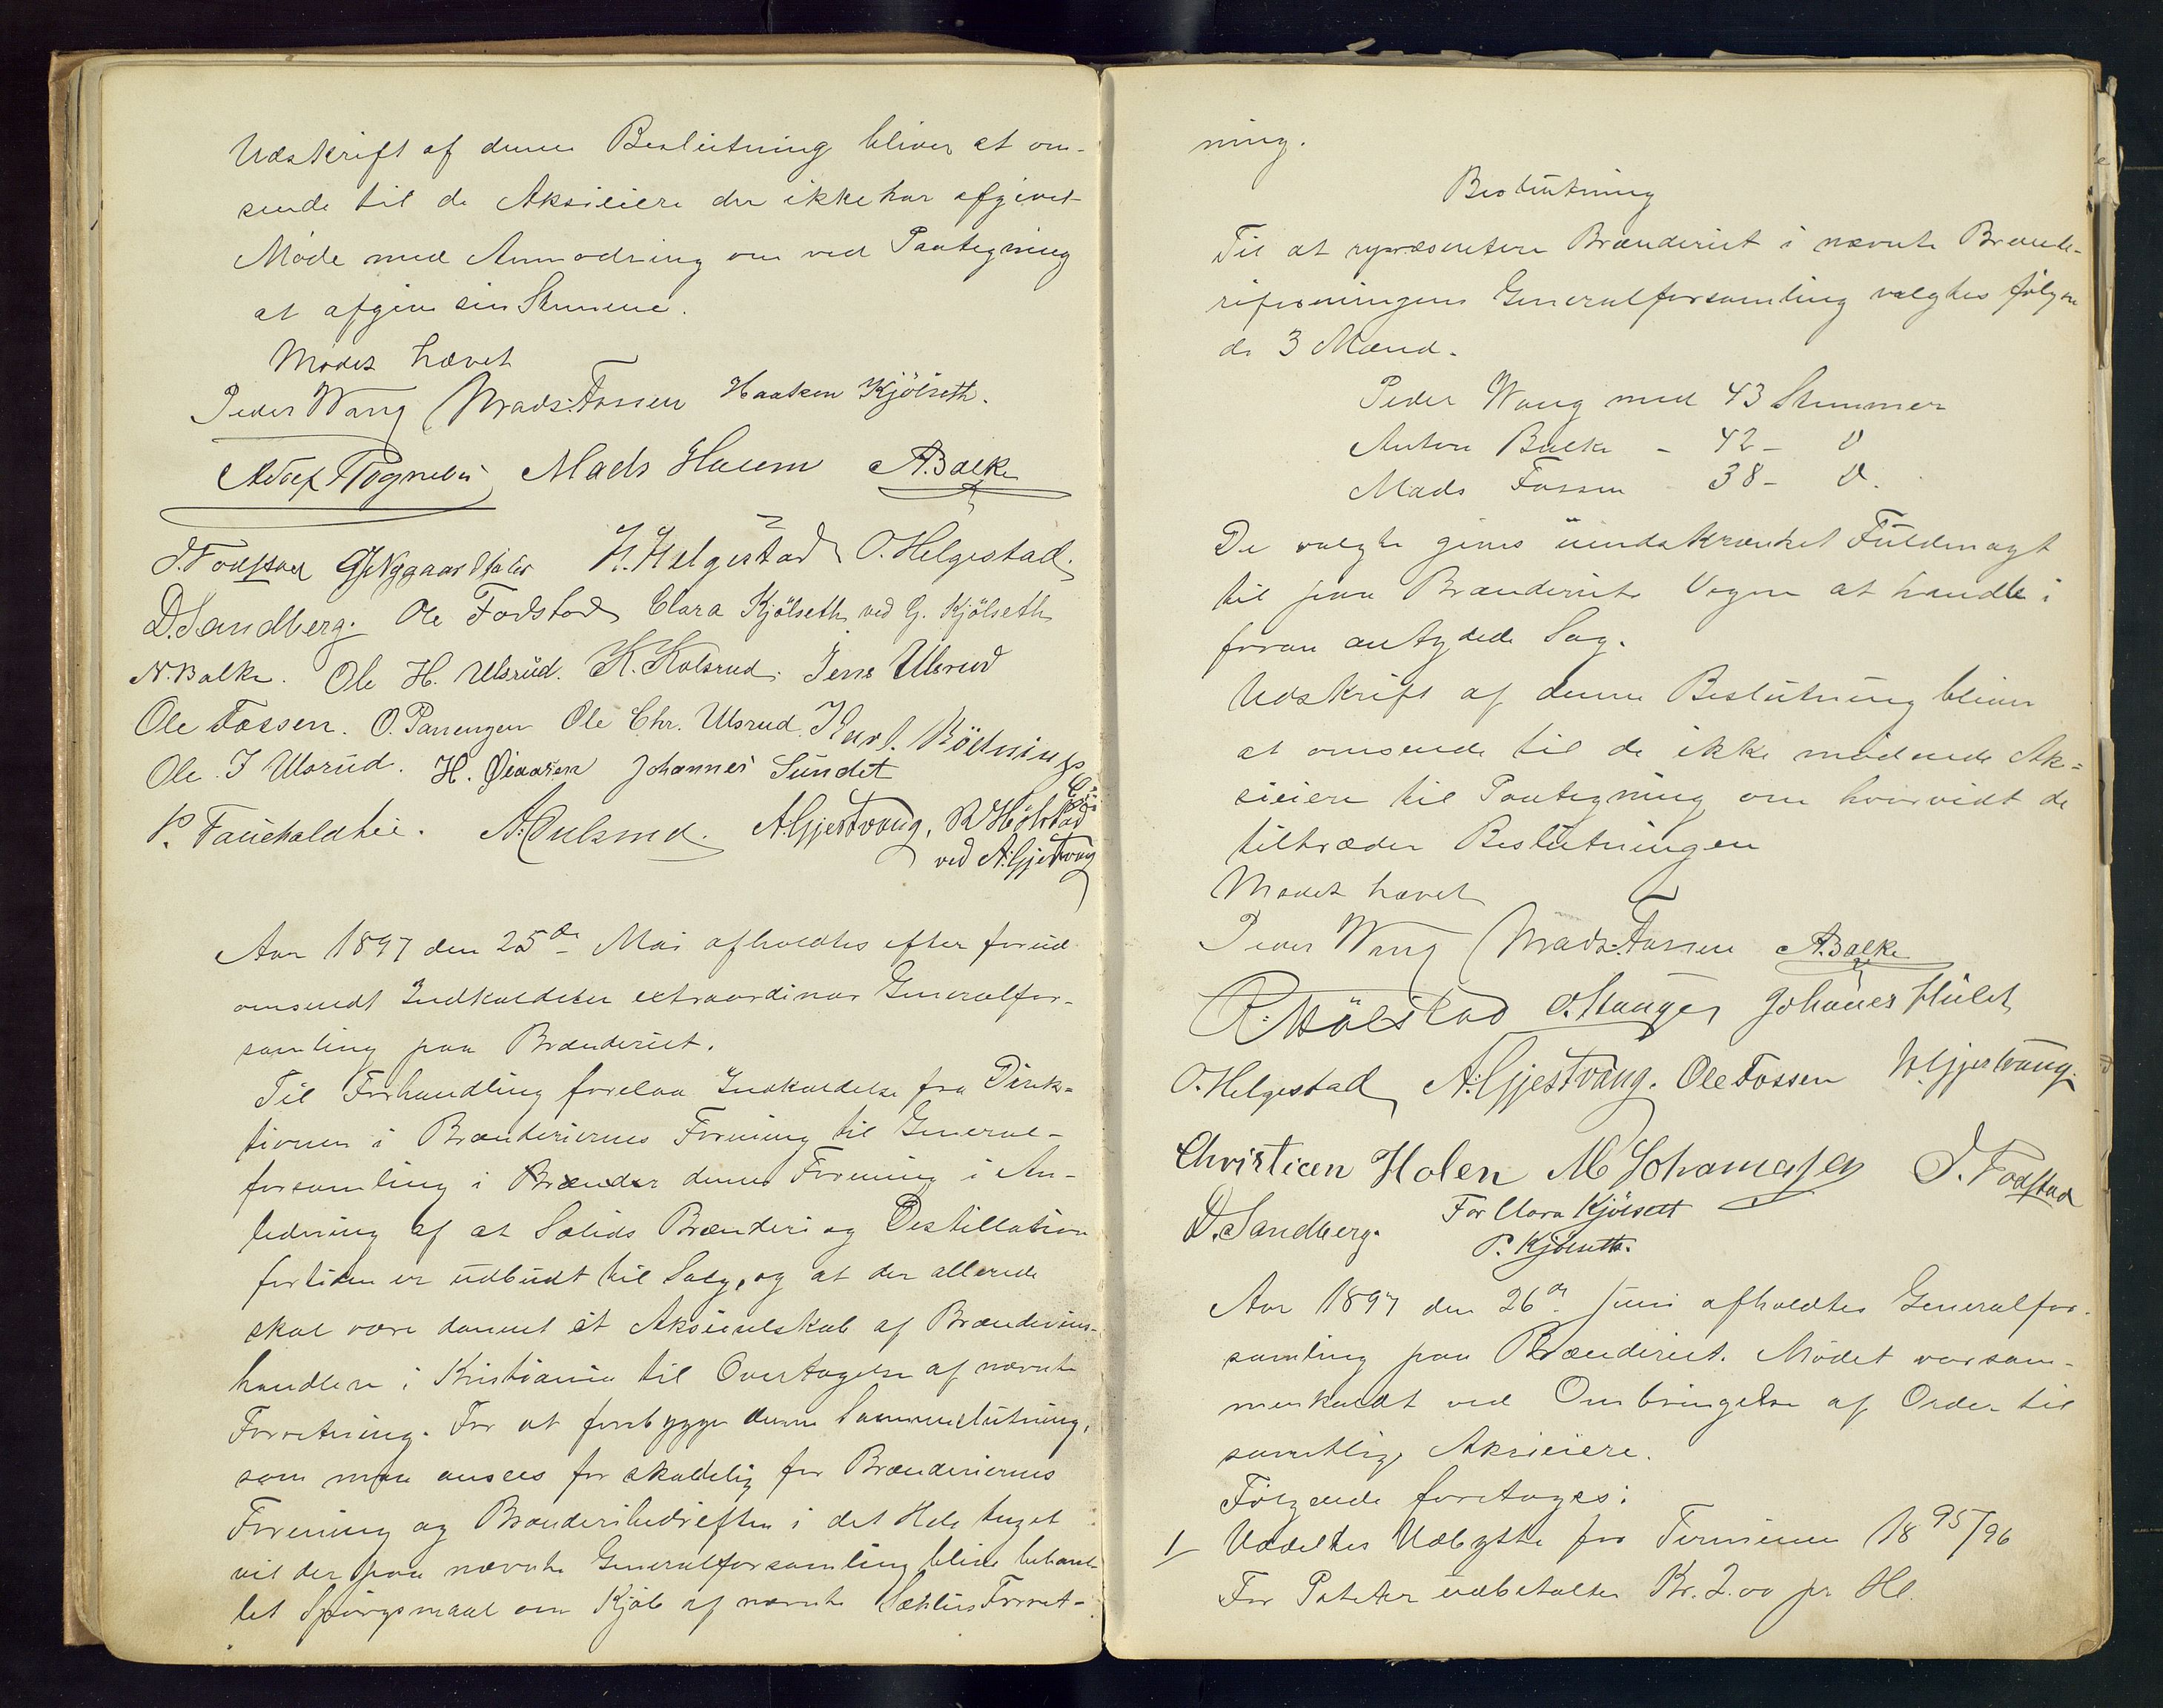 Udskrift af denne Beslutning bliver at om-
sende til de Aksieiere der ikke har afgivet
Møde med Anmodning om ved Paategning
at afgive sin Stemme.
Mødet hævet
Peder Wang Mads Fossen Haaken Kjölseth.
Mads Haum A. Balke
J. Fodstad H. Helgestad O. Helgestad.
D. Sandberg. Ole Fodstad Clara Kjölseth ved G. Kjölseth
N. Balke. Ole H. Ulsrud. K. Kolsrud. Jens Ulsrud
Ole Fossen. O. Panengen Ole Chr. Ulsrud. Karl.
Ole J Ulsrud. H. Johannes Sundet
P. A. A. Gjestvang, R Hölstad
ved A. Gjestvang
Aar 1897 den 25de Mai afholdtes efter forud
omsendt Indkaldelse extraordinær Generalfor-
samling paa Brænderiet.
Til Forhandling forelaa Indkaldelse fra Direk-
tionen i Brænderiernes Forening til General-
forsamling i denne Forening i An-
ledning af at Sælids Brænderi og Destillation
fortiden er udbudt til Salg, og at der allerede
skal være dannet et Aksieselskab af Brændevins-
handlere i Kristiania til Overtagelse af nævnte
Forretning. For at forebygge denne Sammenslutning,
som maa ansees for skadelig for Brænderiernes
Forening og Brænderibedriften i det Hele taget
vil der paa nævnte Generalforsamling blive behand-
let Spörgsmaal om Kjöb af nævnte Forret-
ning.
Beslutning
Til at repræsentere Brænderiet i nævnte Brænde-
riforeningens Generalforsamling valgtes fölgen
de 3 Mænd.
Peder Wang med 43 Stemmer
Anton Balke - 42 - "
Mads Fossen 38 - ".
De valgte gives uindskrænket Fuldmagt
til paa Brænderiets Vegne at handle i
foran antydede Sag.
Udskrift af denne Beslutning bliver
at omsende til de ikke mødende Ak-
sieiere til Paategning om hvorvidt de
tiltræder Beslutningen
Mødet hævet
Peder Wang Mads Fossen A. Balke
R. Hölstad O. Stange Johannes
O. Helgestad A. Gjestvang. Ole Fossen Gjestvang.
Christian Holen M Johannesen J. Fodstad
D. Sandberg. For Clara Kjölsett
P. Kjölseth.
Aar 1897 den 26de Juni afholdtes Generalfor-
samling paa Brænderiet. Mødet var sam-
menkaldt ved Ombringelse af Order til
samtlige Aksieiere.
Følgende foretoges:
1/ Uddeltes Udbytte for Terminen 1895/96
For Poteter udbetaltes Kr. 2.00 pr Hl.